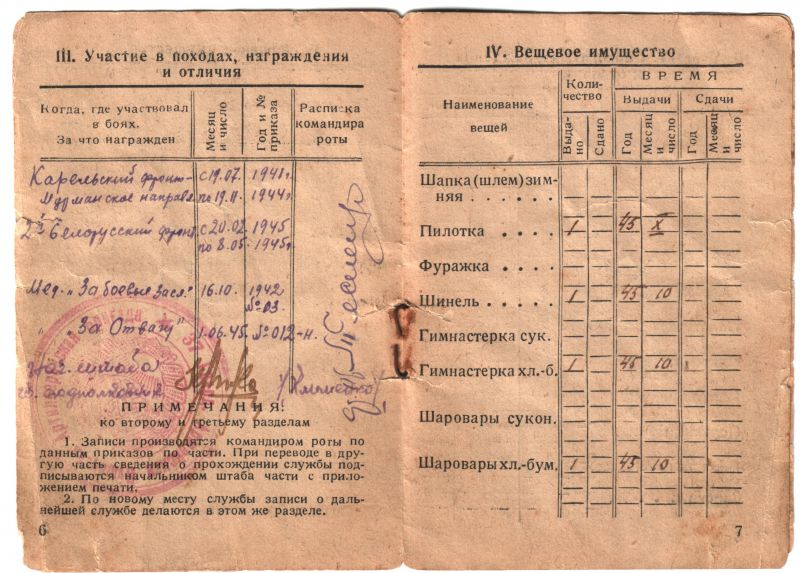 III. Участие в походах, награждения
и отличия
Когда, где участвовал
в боях.
За что награжден
Месяц
и число
Год и №
приказа
Расписка
командира
роты
Карельский фронт с 19.07. 1941 г.
Мурманское направл по 19.11. 1944 г.
2й Белорусский фронт с 20.02 1945
по 8.05. 1945 г.
Мед. „За боевые засл." 16.10. 1942
№ 03.
" „За Отвагу" 1.06.45. № 012-н.
Нач. штаба
гв. подполковник
ПРИМЕЧАНИЯ:
ко второму и третьему разделам
1. Записи производятся командиром роты по
данным приказов по части. При переводе в дру-
гую часть сведения о прохождении службы под-
писываются начальником штаба части с прило-
жением печати.
2. По новому месту службы записи о даль-
нейшей службе делаются в этом же разделе.
6
IV. Вещевое имущество
Наименование
вещей
Коли-
чество
ВРЕМЯ
Выдачи
Сдачи
Выда-
но
Сдано
Год
Месяц
и
число
Год
Месяц
и
число
Шапка (шлем) зим-
няя . . . . . .
Пилотка . . . . 1 45 X
Фуражка . . . .
Шинель . . . . . 1 45 10
Гимнастерка сук.
Гимнастерка хл.-б. 1 45 10
Шаровары сукон.
Шаровары хл.-бум. 1 45 10
7